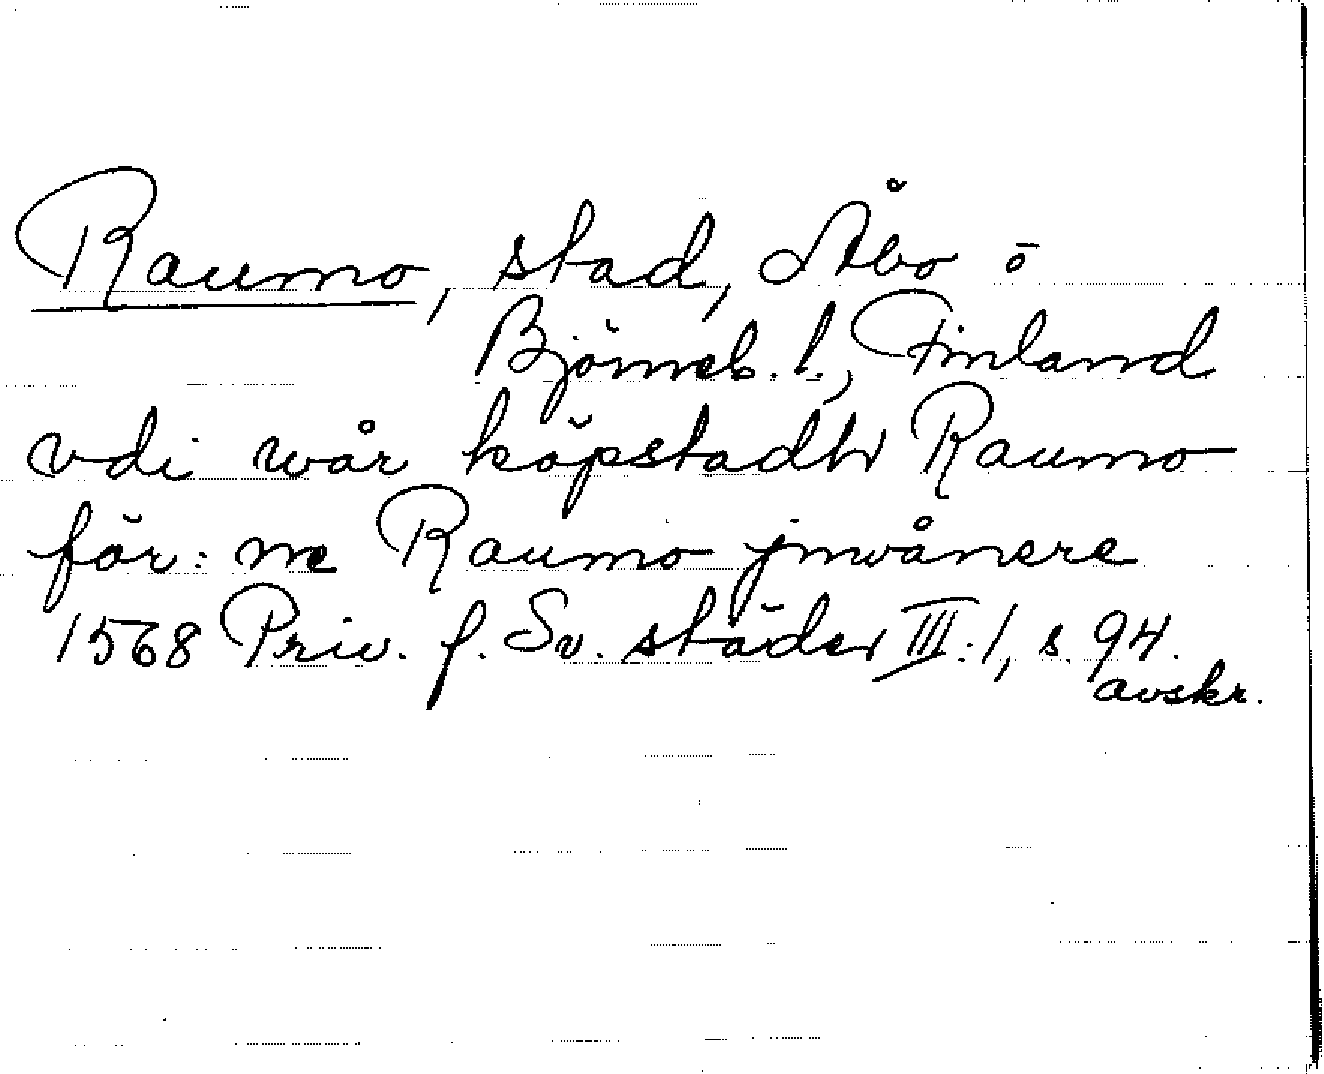 Raumo, stad, Åbo o
Björneb. l., Finland
vdi wår köpstadh Raumo
för: ne Raumo jnwånere
1568 Priv. f. Sv. städer III:1, s. 94.
avskr.